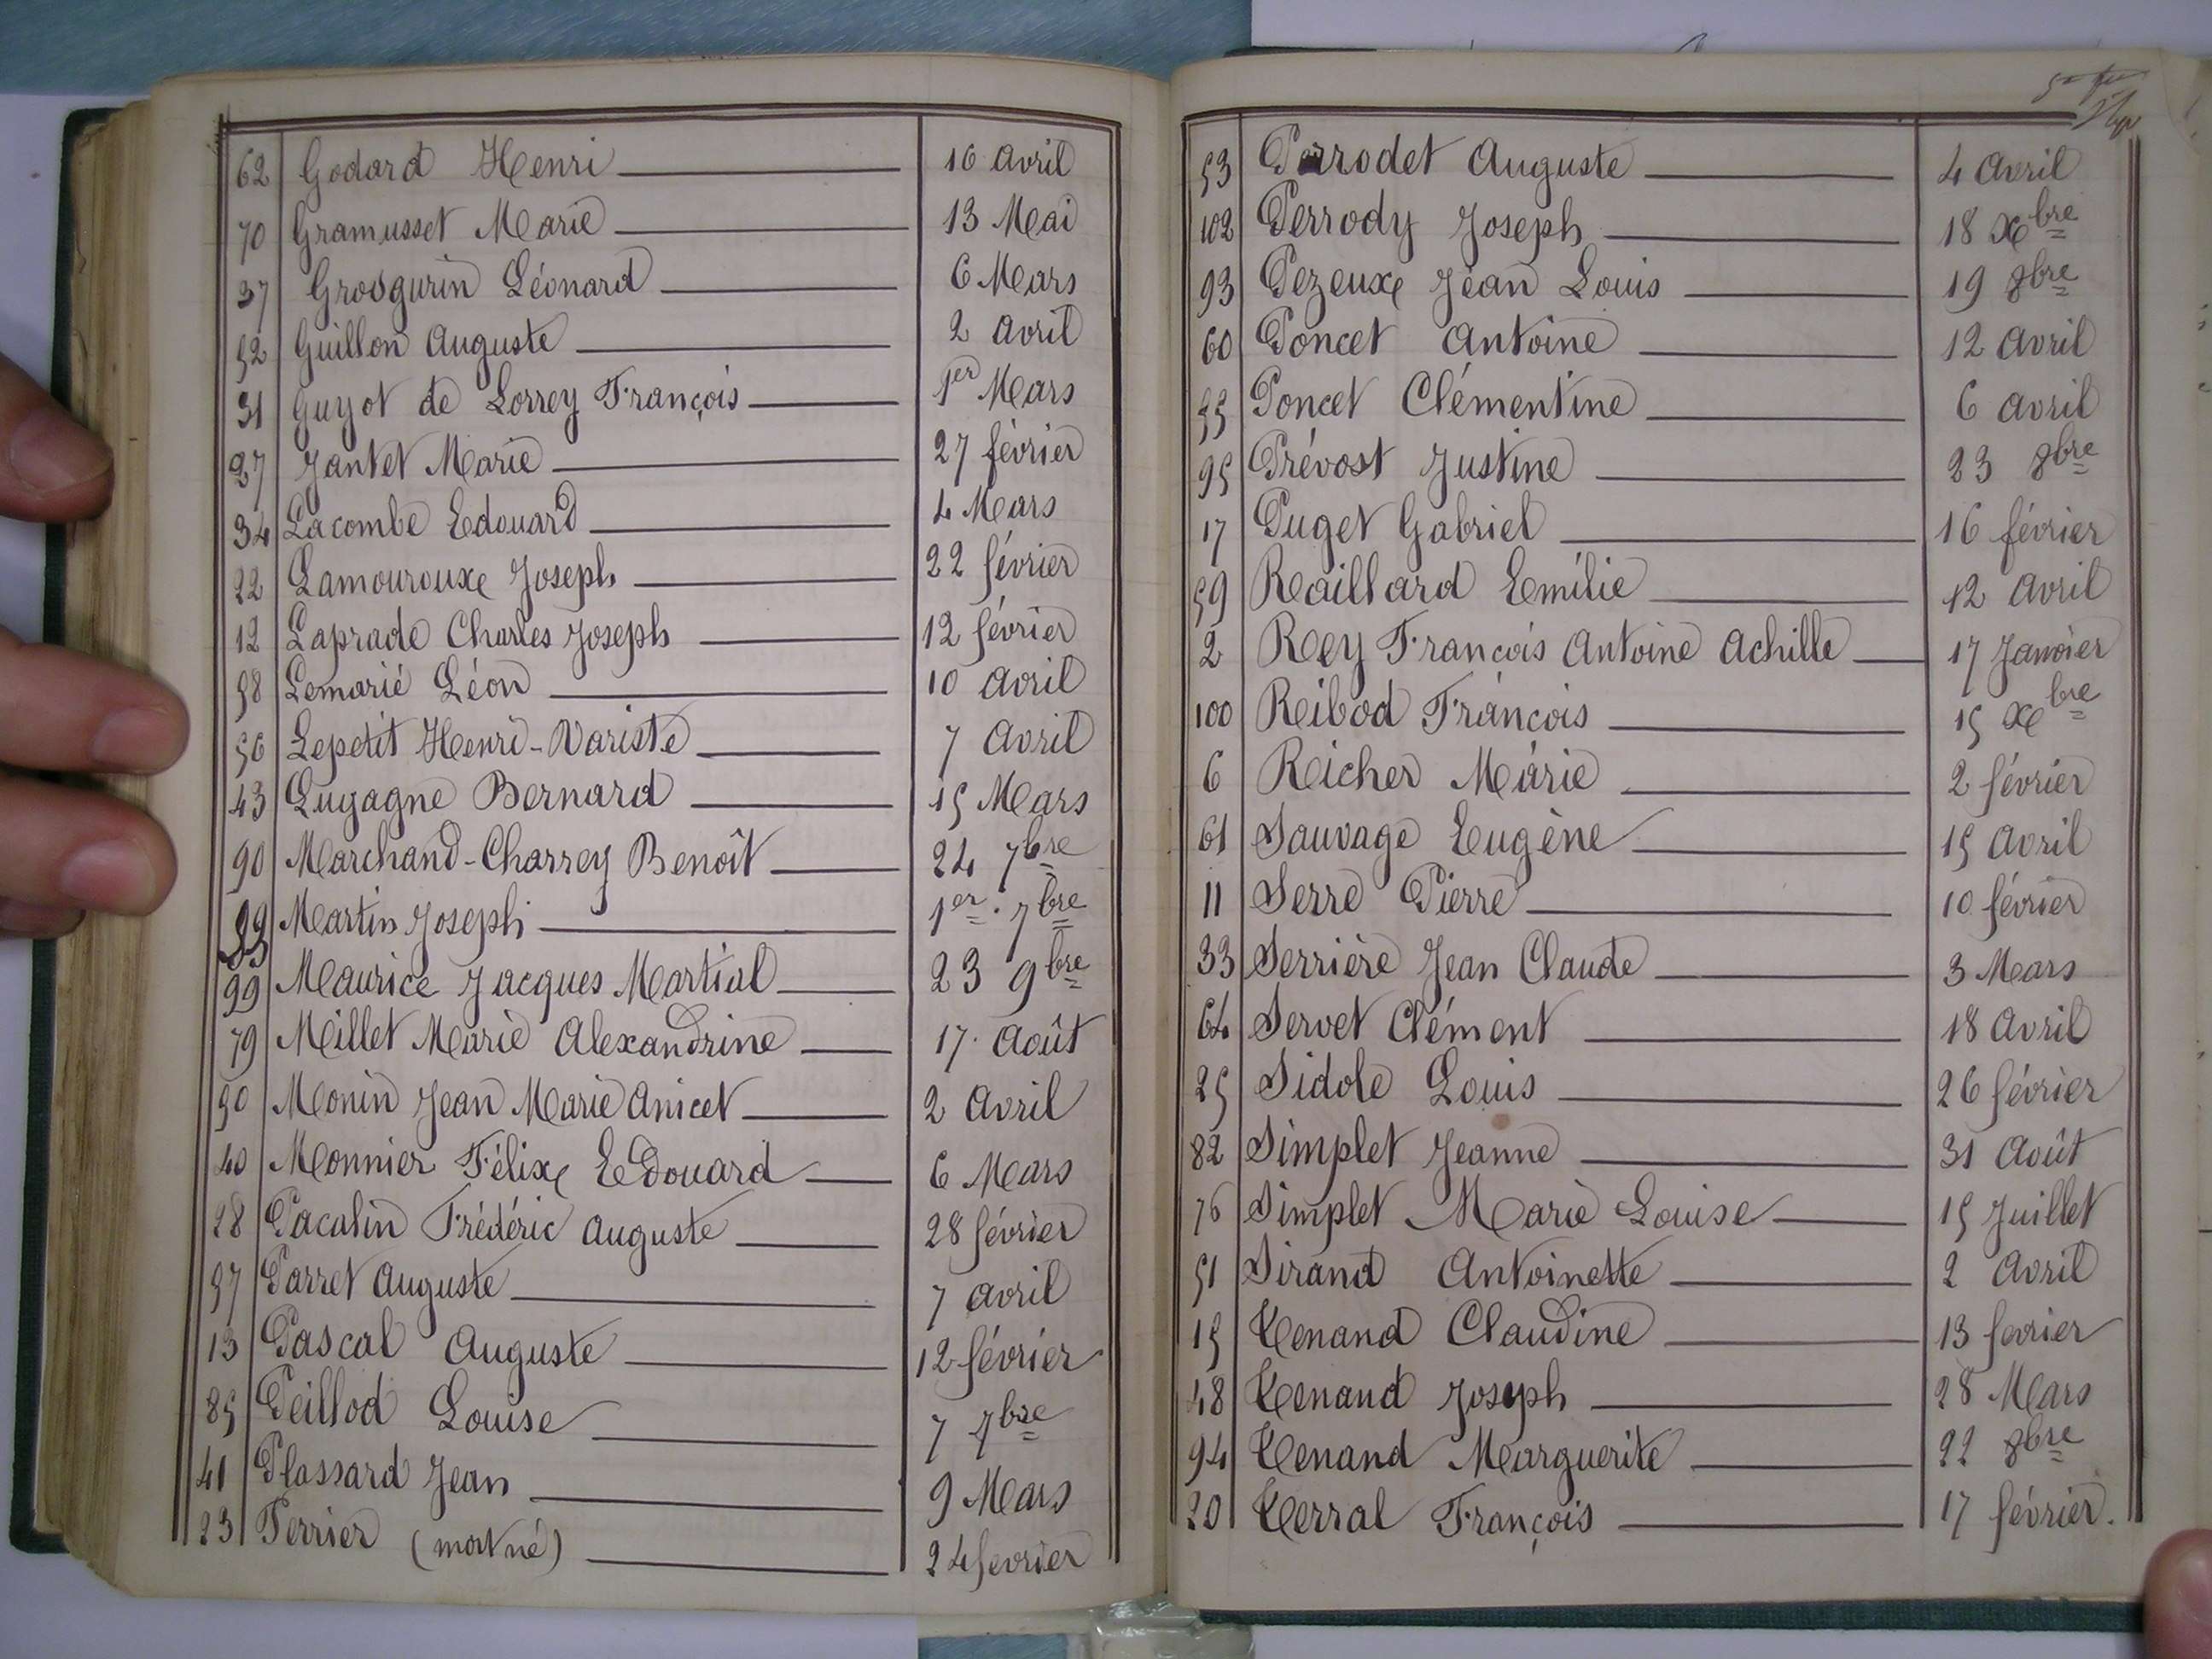 62 Godard Henri 16 avril
70 Gramusset Marie 13 Mai
37 Grosgurin Léonard 6 Mars
52 Guillon Auguste 2 avril
31 Guyot de Lorrey François 1er Mars
27 Jantet Marie 27 février
34 Lacombe Edouard 4 Mars
22 Lamouroux Joseph 22 février
12 Laprade Charles Joseph 12 février
58 Lemarié Léon 10 avril
56 Lepetit Henri-Variste 7 Avril
43 Luyagne Bernard 15 Mars
90 Marchand-Charrey Benoît 24 7bre
Martin Joseph 1er 7bre
99 Maurice Jacques Martial 23 9bre
79 Millet Marie Alexandrine 17 Août
50 Monin Jean Marie Anicet 2 Avril
40 Monnier Félix Edouard 6 Mars
28 Pacalin Frédéric Auguste 28 février
57 Parret Auguste 7 avril
13 Pascal Auguste 12 février
85 Peillod Louise 7 7bre
41 Plassard Jean 9 Mars
23 Perrier (mort né) 24 fevrier
53 Perrodet Auguste 4 Avril
102 Perrody Joseph 18 Xbre
93 Pezeux Jean Louis 19 8bre
60 Poncet Antoine 12 avril
55 Poncet Clémentine 6 avril
95 Prévost Justine 23 8bre
17 Puget Gabriel 16 février
59 Raillard Emilie 12 avril
2 Rey François Antoine Achille 17 Janvier
100 Reibod François 15 Xbre
6 Richer Marie 2 février
61 Sauvage Eugène 15 avril
11 Serre Pierre 10 février
33 Serrière Jean Claude 3 Mars
64 Servet Clément 18 avril
25 Sidole Louis 26 février
82 Simplet Jeanne 31 Août
76 Simplet Marie Louise 15 Juillet
51 Sirand Antoinette 2 Avril
15 Tenand Claudine 13 fevrier
48 Tenand Joseph 28 Mars
94 Tenand Marguerite 22 8bre
20 Terral François 17 février.